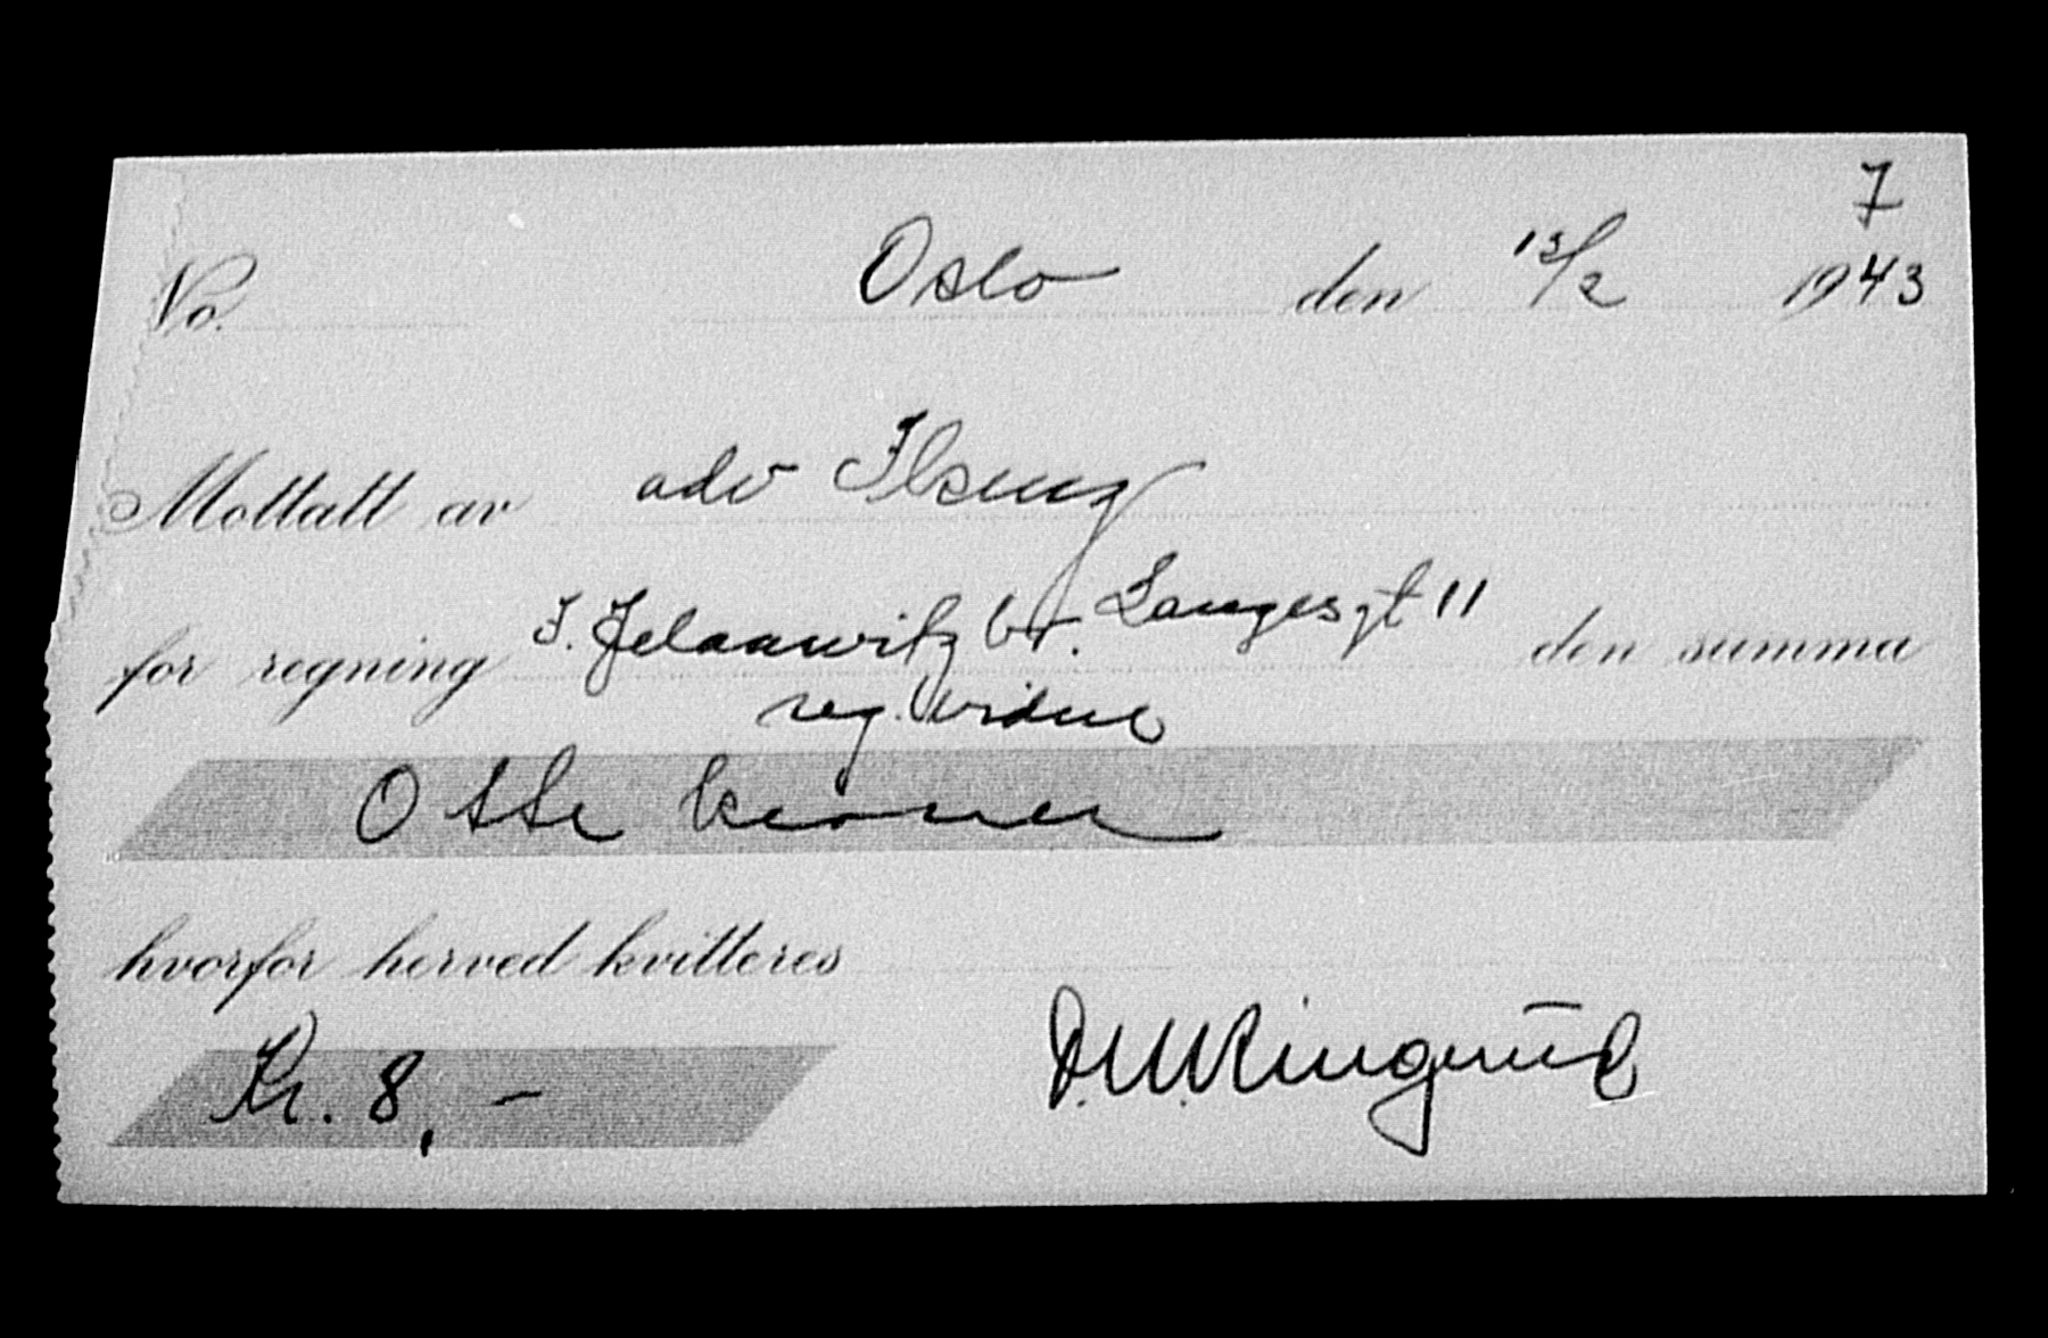 7
No. Oslo den 13/2 1943
Mottatt av adv Ilseng
for regning I. Jelaawitz br. Langesgt 11 den summa
reg.
Otte kroner
hvorfor herved kvitteres
Kr. 8,-
Ringerud